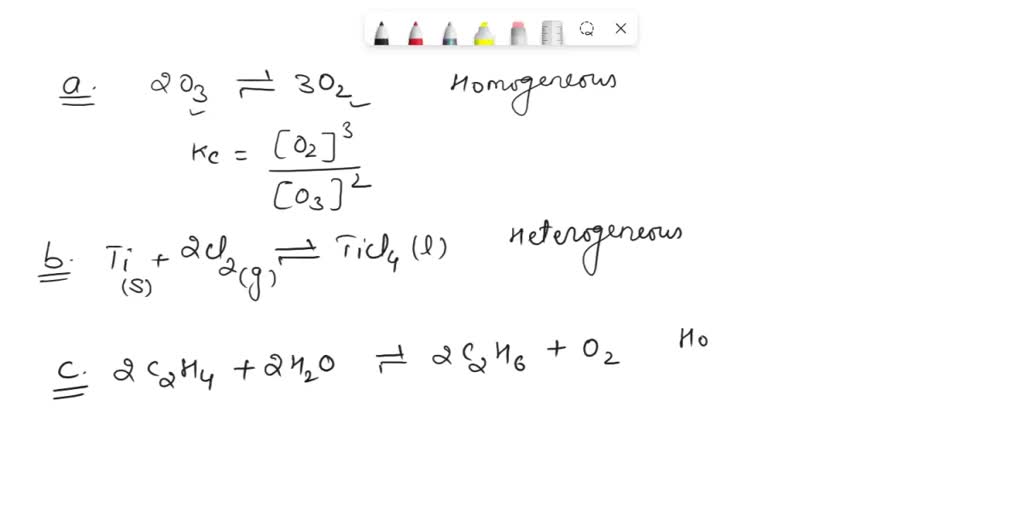 a. 2O₃ ⇌ 3O₂ Homogeneous
Kc = [O₂]³ / [O₃]²
b. Ti(s) + 2Cl₂(g) ⇌ TiCl₄(l) Heterogeneous
c. 2C₂H₄ + 2H₂O ⇌ 2C₂H₆ + O₂ Ho